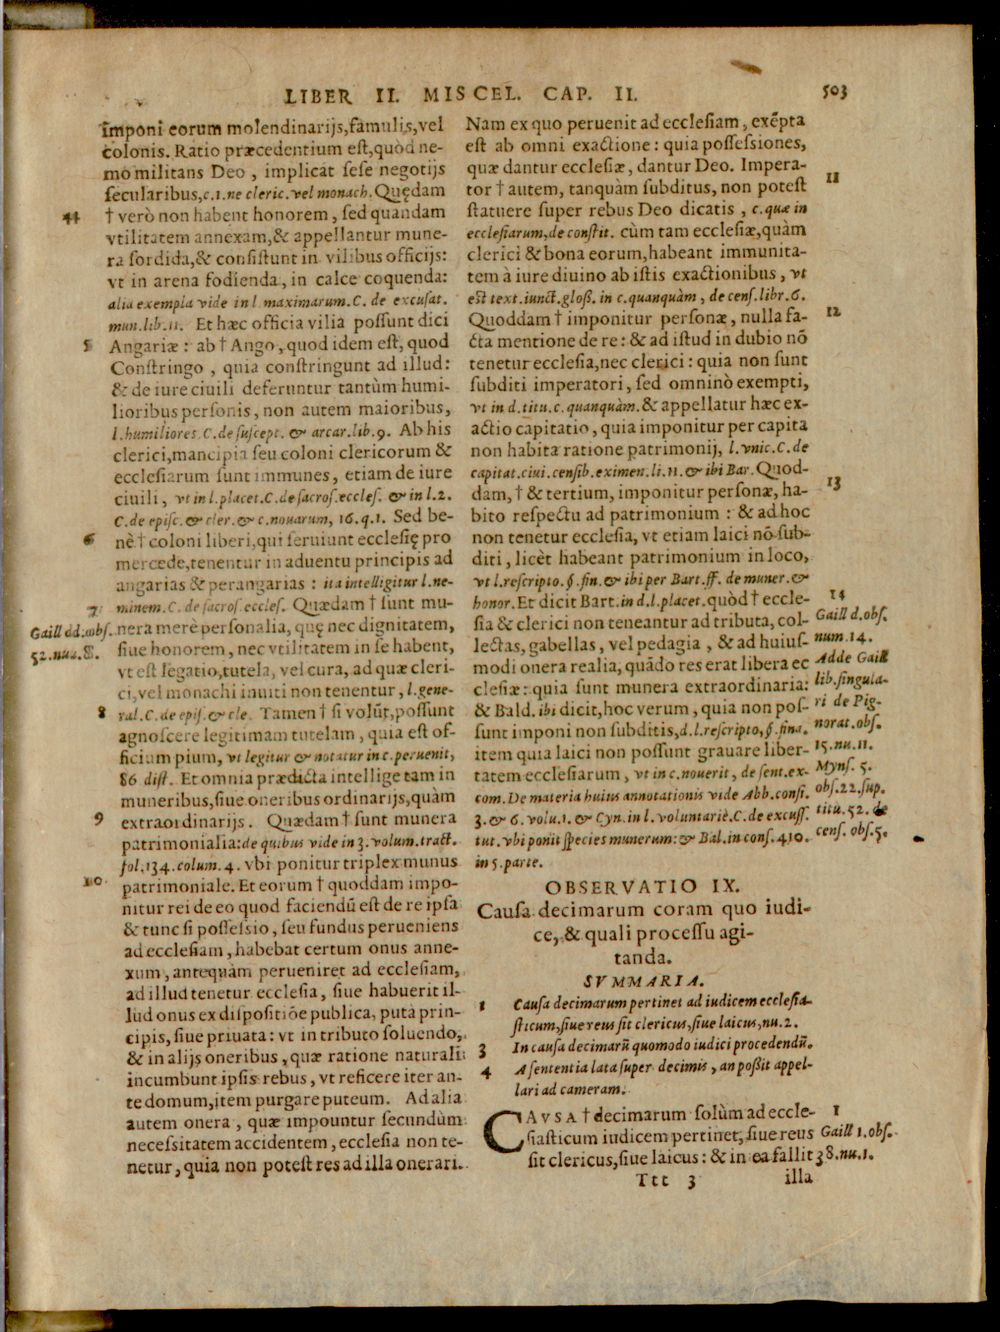 LIBER II. MISCEL. CAP. II. 503
imponi eorum molendinarijs, famulis, vel
colonis. Ratio præcedentium est, quòd ne-
mo militans Deo, implicat sese negotijs
secularibus, c.1. ne cleric. vel monach. Quędam
44 † verò non habent honorem, sed quandam
vtilitatem annexam, & appellantur mune-
ra sordida, & consistunt in vilibus officijs:
vt in arena fodienda, in calce coquenda:
alia exempla vide in l maximarum. C. de excusat.
mun. lib. 11. Et hæc officia vilia possunt dici
5 Angariæ: ab † Ango, quod idem est, quod
Constringo, quia constringunt ad illud:
& de iure ciuili deferuntur tantùm humi-
lioribus personis, non autem maioribus,
l. humiliores. C. de suscept. & arcar. lib. 9. Ab his
clerici, mancipia seu coloni clericorum &
ecclesiarum sunt immunes, etiam de iure
ciuili, vt in l. placet. C. de sacros. eccles. & in l. 2.
C. de episc. & cler. & c. nouarum, 16. q. 1. Sed be-
6 nè † coloni liberi, qui seruiunt ecclesię pro
mercede, tenentur in aduentu principis ad
angarias & perangarias: ita intelligitur l. ne-
7 minem. C. de sacros. eccles. Quædam † sunt mu-
Gaill d d. obs. nera merè personalia, quę nec dignitatem,
52. nu. 8. siue honorem, nec vtilitatem in se habent,
vt est legatio, tutela, vel cura, ad quæ cleri-
ci, vel monachi inuiti non tenentur, l. gene-
8 ral. C. de epis. & cle. Tamen † si volūt, possunt
agnoscere legitimam tutelam, quia est of-
ficium pium, vt legitur & notatur in c. peruenit,
86 dist. Et omnia prædicta intellige tam in
muneribus, siue oneribus ordinarijs, quàm
9 extraordinarijs. Quædam † sunt munera
patrimonialia: de quibus vide in 3. volum. tract.
fol. 134. colum. 4. vbi ponitur triplex munus
10 patrimoniale. Et eorum † quoddam impo-
nitur rei de eo quod faciendū est de re ipsa
& tunc si possessio, seu fundus perueniens
ad ecclesiam, habebat certum onus anne-
xum, antequàm perueniret ad ecclesiam,
ad illud tenetur ecclesia, siue habuerit il-
lud onus ex dispositiōe publica, puta prin-
cipis, siue priuata: vt in tributo soluendo,
& in alijs oneribus, quæ ratione naturali
incumbunt ipsis rebus, vt reficere iter an-
te domum, item purgare puteum. Ad alia
autem onera, quæ impountur secundùm
necessitatem accidentem, ecclesia non te-
netur, quia non potest res ad illa onerari.
Nam ex quo peruenit ad ecclesiam, exēpta
est ab omni exactione: quia possessiones,
quæ dantur ecclesiæ, dantur Deo. Impera-
tor † autem, tanquàm subditus, non potest 11
statuere super rebus Deo dicatis, c. quæ in
ecclesiarum, de constit. cùm tam ecclesiæ, quàm
clerici & bona eorum, habeant immunita-
tem à iure diuino ab istis exactionibus, vt
est text. iunct. gloß. in c. quanquàm, de cens. libr. 6.
Quoddam † imponitur personæ, nulla fa- 12
cta mentione de re: & ad istud in dubio nō
tenetur ecclesia, nec clerici: quia non sunt
subditi imperatori, sed omninò exempti,
vt in d. titu. c. quanquàm. & appellatur hæc ex-
actio capitatio, quia imponitur per capita
non habita ratione patrimonij, l. vnic. C. de
capitat. ciui. censib. eximen. li. 11. & ibi Bar. Quod-
dam, † & tertium, imponitur personæ, ha- 13
bito respectu ad patrimonium: & ad hoc
non tenetur ecclesia, vt etiam laici nō sub-
diti, licèt habeant patrimonium in loco,
vt l. rescripto. §. fin. & ibi per Bart. ff. de muner. &
honor. Et dicit Bart. in d. l. placet. quòd † eccle- 14
sia & clerici non teneantur ad tributa, col- Gaill d. obs.
lectas, gabellas, vel pedagia, & ad huius- num. 14.
modi onera realia, quādo res erat libera ec Adde Gaill
clesiæ: quia sunt munera extraordinaria: lib. singula-
& Bald. ibi dicit, hoc verum, quia non pos- ri de Pig-
sunt imponi non subditis, d. l. rescripto, §. fina. norat. obs.
item quia laici non possunt grauare liber- 15. nu. 11.
tatem ecclesiarum, vt in c. nouerit, de sent. ex- Myns. 5.
com. De materia huius annotationis vide Abb. consi. obs. 22. sup.
3. & 6. volu. 1. & Cyn. in l. voluntariè. C. de excuss. titu. 52. de
tut. vbi ponit species munerum: & Bal. in cons. 410. cens. obs. 5.
in 5. parte.
OBSERVATIO IX.
Causa decimarum coram quo iudi-
ce, & quali processu agi-
tanda.
SVMMARIA.
1 Causa decimarum pertinet ad iudicem ecclesia-
sticum, siue reus sit clericus, siue laicus, nu. 2.
3 In causa decimarū quomodo iudici procedendū.
4 A sententia lata super decimis, an poßit appel-
lari ad cameram.
CAVSA † decimarum solùm ad eccle- 1
siasticum iudicem pertinet, siue reus Gaill 1. obs.
sit clericus, siue laicus: & in ea fallit 38. nu. 1.
Ttt 3 illa